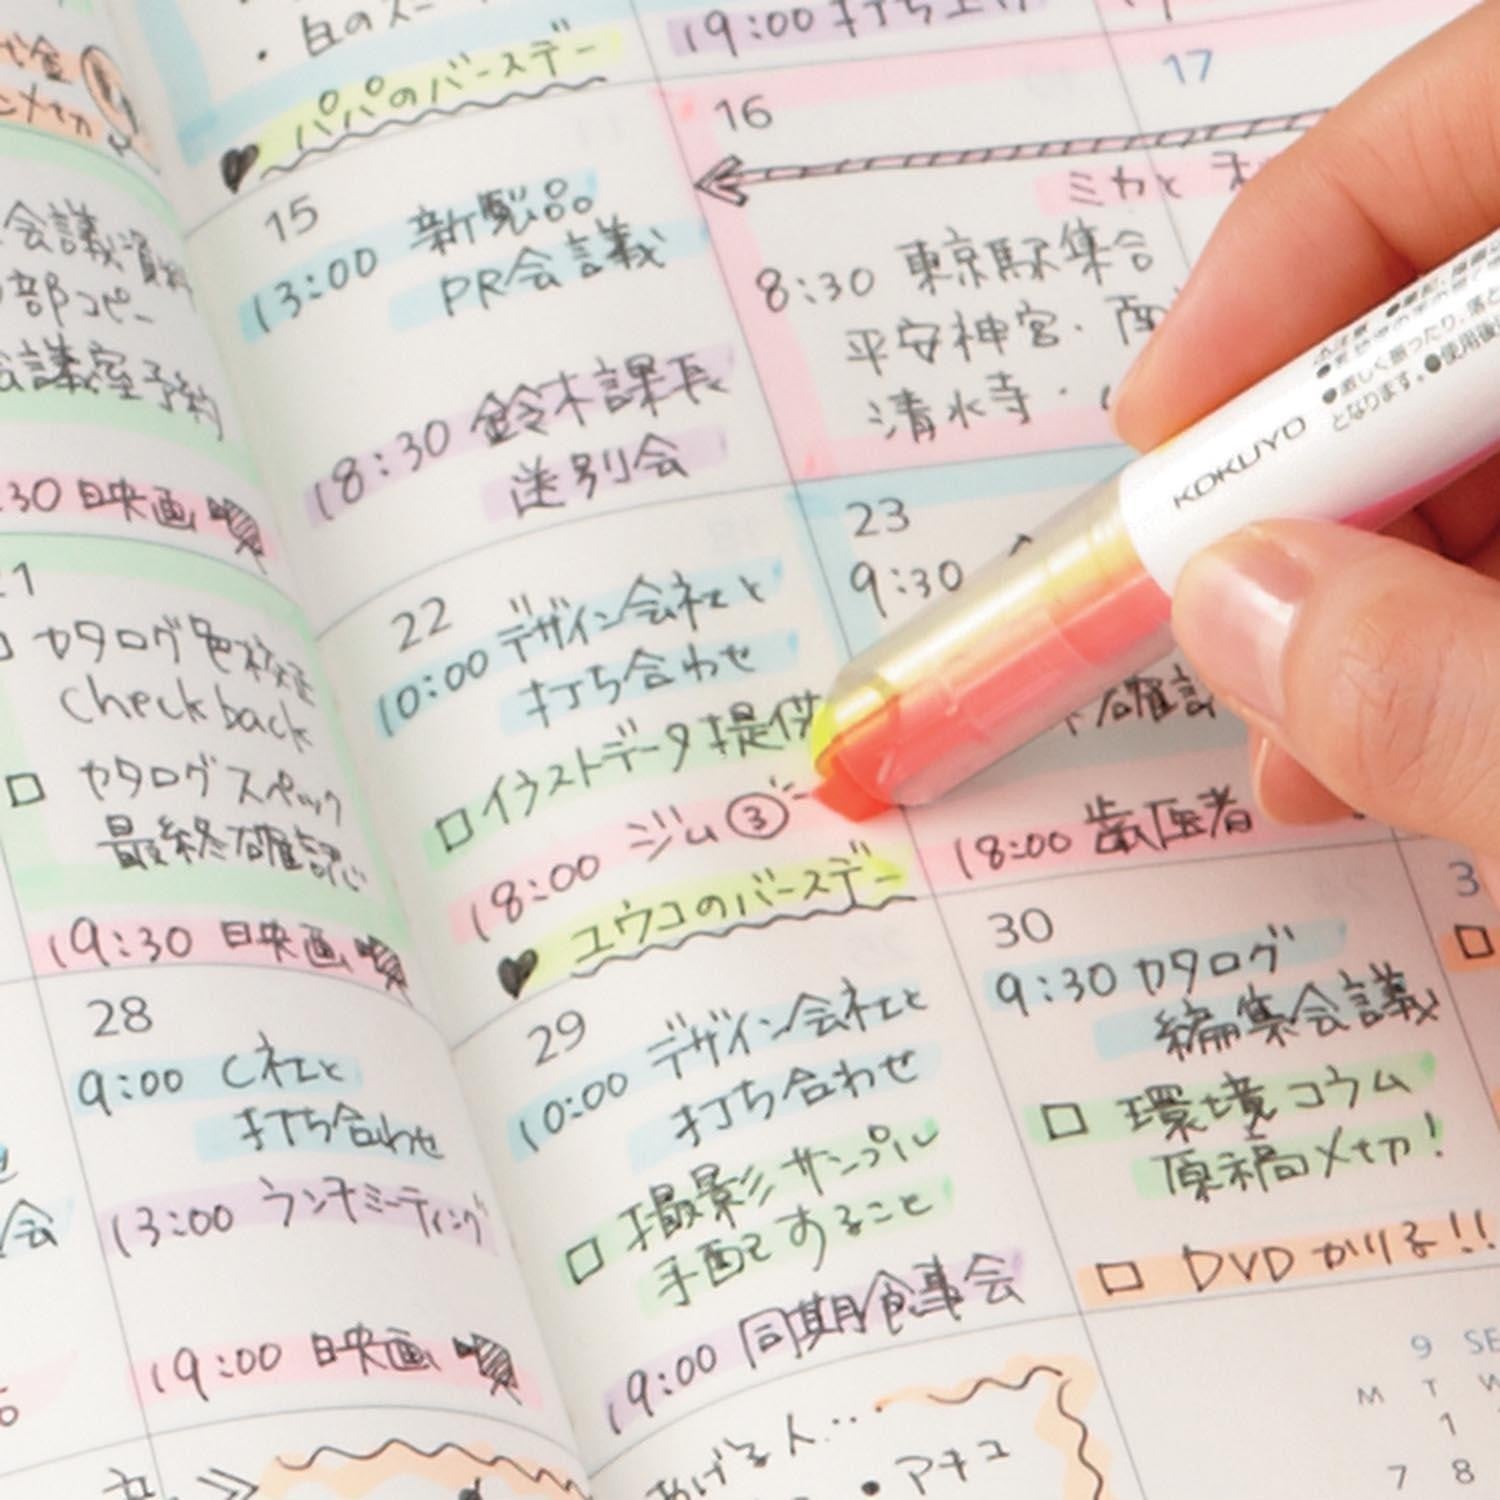 19:00 打ち上げ
パパのバースデー
15
13:00 新製品
PR会議
18:30 鈴木課長
送別会
16
17
ミカと
8:30 東京駅集合
平安神宮・
清水寺・
会議資料
部コピー
会議室予約
30 映画
カタログ色校正
check back
□ カタログスペック
最終確認
19:30 映画
22
10:00 デザイン会社と
打ち合わせ
□イラストデータ提供
18:00 ジム③
ユウコのバースデー
23
9:30
18:00 歯医者
28
9:00 C社と
打ち合わせ
13:00 ランチミーティング
19:00 映画
29
10:00 デザイン会社と
打ち合わせ
□ 撮影サンプル
手配すること
19:00 同期食事会
30
9:30 カタログ
編集会議
□ 環境コラム
原稿〆切!
□ DVDかりる!!
あげる人…
・アキコ
9 SE
M T W
1
7 8
KOKUYO
となります。●使用後